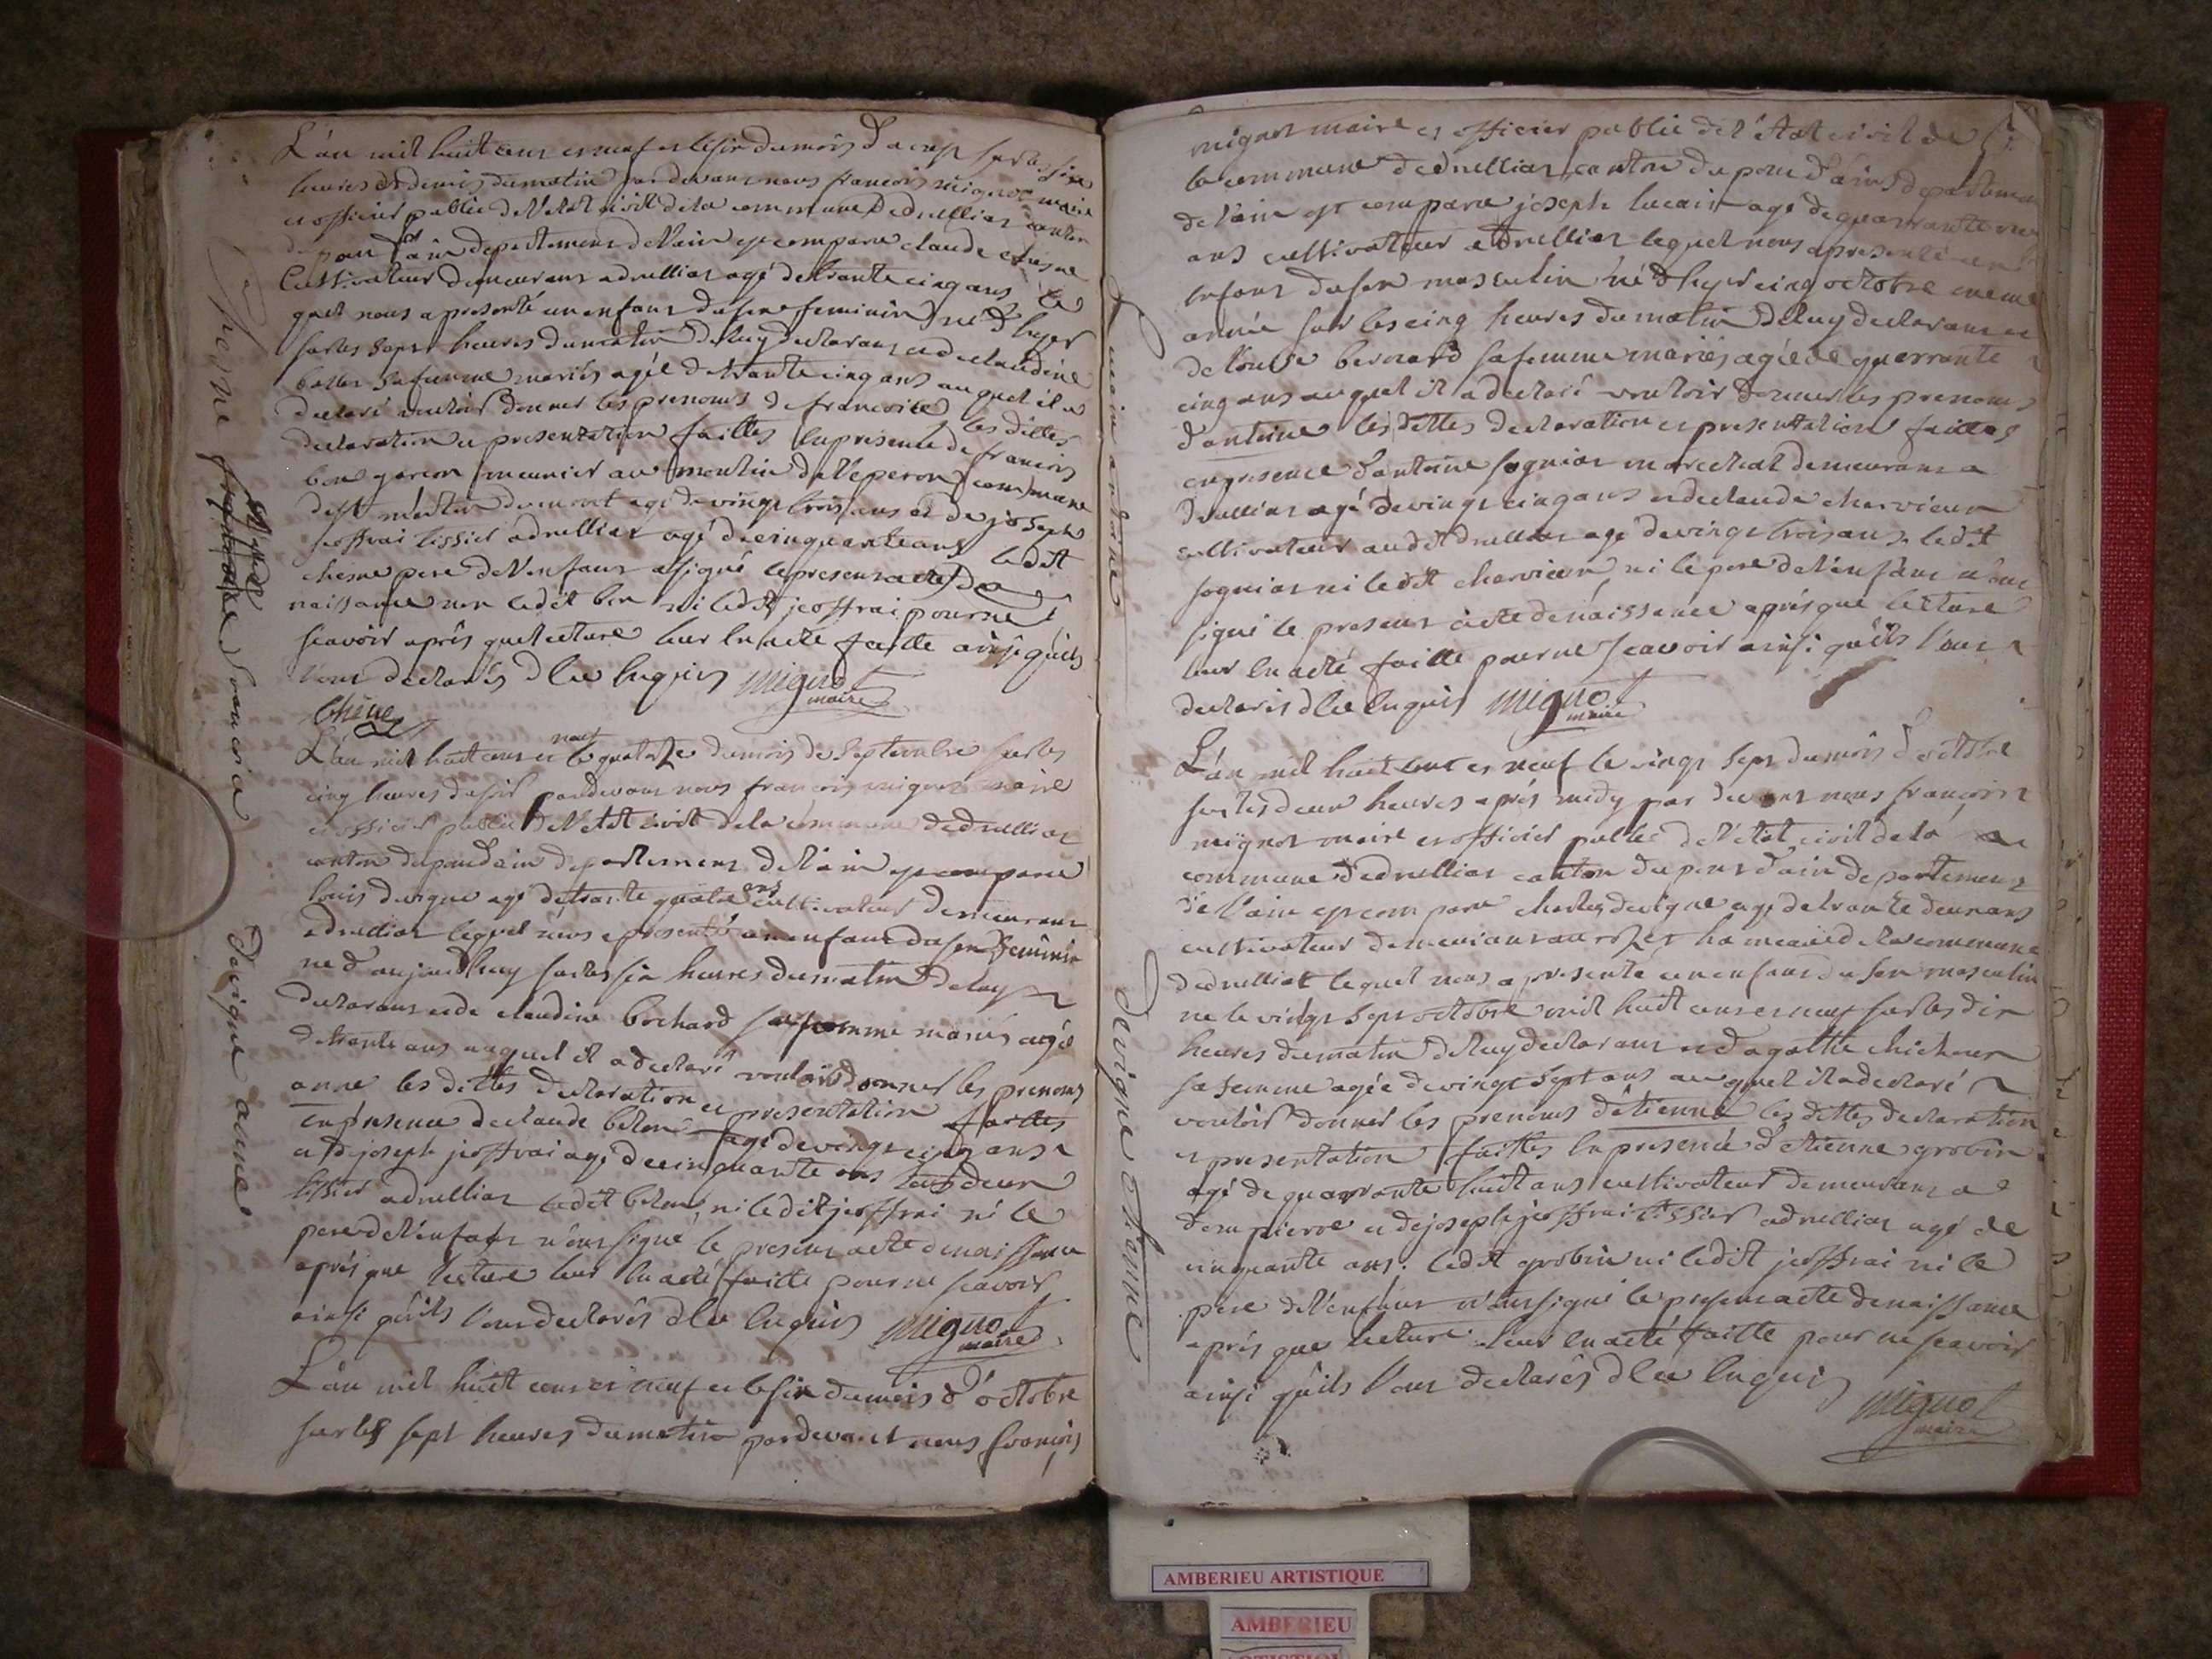 L'an mil huit cens et neuf et le six du mois d'aoust sur les six
heures et demis du matin par devant nous francois mignot maire
et officier public de l'etat civil de la commune de druillias canton
du pont d'ain departement de l'ain est comparu claude chesne
Cultivateur demeurant a druillias agé de trante cinq ans le
quel nous a presenté un enfant du sexe feminin né d'hyer
sur les sept heures du matin de luy declarant et de claudine
sa femme mariés agée de trante cinq ans auquel il a
declaré vouloir donner les prenoms de francoise les dittes
declaration et presentation faittes en presence de francois
bon garcon meunier au moulin de l'eperon commune
de st martin du mont agé de vingt trois ans et de joseph
jeoffrai tissier a druillias agé de cinquante ans le dit
chesne pere de l'enfant a signé le present acte de
naissance non le dit bon ni le dit jeoffrai pour ne
scavoir aprés que lecture leur en acté faitte ainsi qu'ils
l'ont declarés d'ce enquis mignot
maire
Chêne
L'an mil huit cens et neuf le quatorze du mois de septembre sur les
cinq heures du soir pardevant nous francois mignot maire
et officier public de l'etat civil de la commune de druillias
canton du pont d'ain departement de l'ain est comparu
louis devigne agé de trante quatre ans cultivateur demeurant
a druillias lequel nous a presenté un enfant du sexe feminin
né d'aujourdhuy sur les six heures du matin de luy
declarant et de claudine bochard sa femme mariés agée
de trante ans auquel il a declaré vouloir donner les prenoms
anne les dittes declaration et presentation faittes
en presence de claude agé de vingt cinq ans
et de joseph jeoffrai agé de cinquante ans tous deux
tissier a druillias le dit ni le dit jeoffrai ni le
pere de l'enfant n'ont signé le present acte de naissance
aprés que lecture leur en acté faitte pour ne scavoir
ainsi qu'ils l'ont declarés d'ce enquis mignot
maire
L'an mil huit cens et neuf et le six du mois d'octobre
sur les sept heures du matin pardevant nous francois
Chesne francoise
devigne anne
mignot maire et officier public de l'état civil de
la commune de druillias canton du pont d'ain departement
de l'ain est comparu joseph lucain agé de quarrante
ans cultivateur a druillias lequel nous a presenté un
enfant du sexe masculin né d'hyer cinq octobre meme
année sur les cinq heures du matin de luy declarant et
de louise bernard sa femme mariés agée de quarrante
cinq ans auquel il a declaré vouloir donner les prenoms
d'antoine les dittes declaration et presentation faittes
en presence d'antoine sognias marechal demeurant a
druillias agé de vingt cinq ans et de claude chervieux
cultivateur audit druillias agé de vingt trois ans le dit
sognias ni le dit chervieux ni le pere de l'enfant n'ont
signé le present acte de naissance aprés que lecture
leur en acté faitte pour ne scavoir ainsi qu'ils l'ont
declarés d'ce enquis mignot
maire
L'an mil huit cens et neuf le vingt sept du mois d'octobre
sur les deux heures aprés midy par devant nous francois
mignot maire et officier public de l'état civil de la
commune de druillias canton du pont d'ain departement
de l'ain est comparu charles devigne agé de trante deux ans
cultivateur demeurant au hameaux de la commune
de druillias lequel nous a presenté un enfant du sexe masculin
né le vingt sept octobre mil huit cens et neuf sur les dix
heures du matin de luy declarant et d'agathe
sa femme agée de vingt sept ans auquel il a declaré
vouloir donner les prenoms d'étienne les dittes declaration
et presentation faittes en presence d'étienne grobon
agé de quarrante huit ans cultivateur demeurant a
dompierre et de joseph jeoffrai tissier a druillias agé de
cinquante ans. le dit grobon ni le dit jeoffrai ni le
pere de l'enfant n'ont signé le present acte de naissance
aprés que lecture leur en acté faitte pour ne scavoir
ainsi qu'ils l'ont declarés d'ce enquis
mignot
maire
lucain antoine
devigne etienne
AMBERIEU ARTISTIQUE
AMBERIEU
ARTISTIQUE